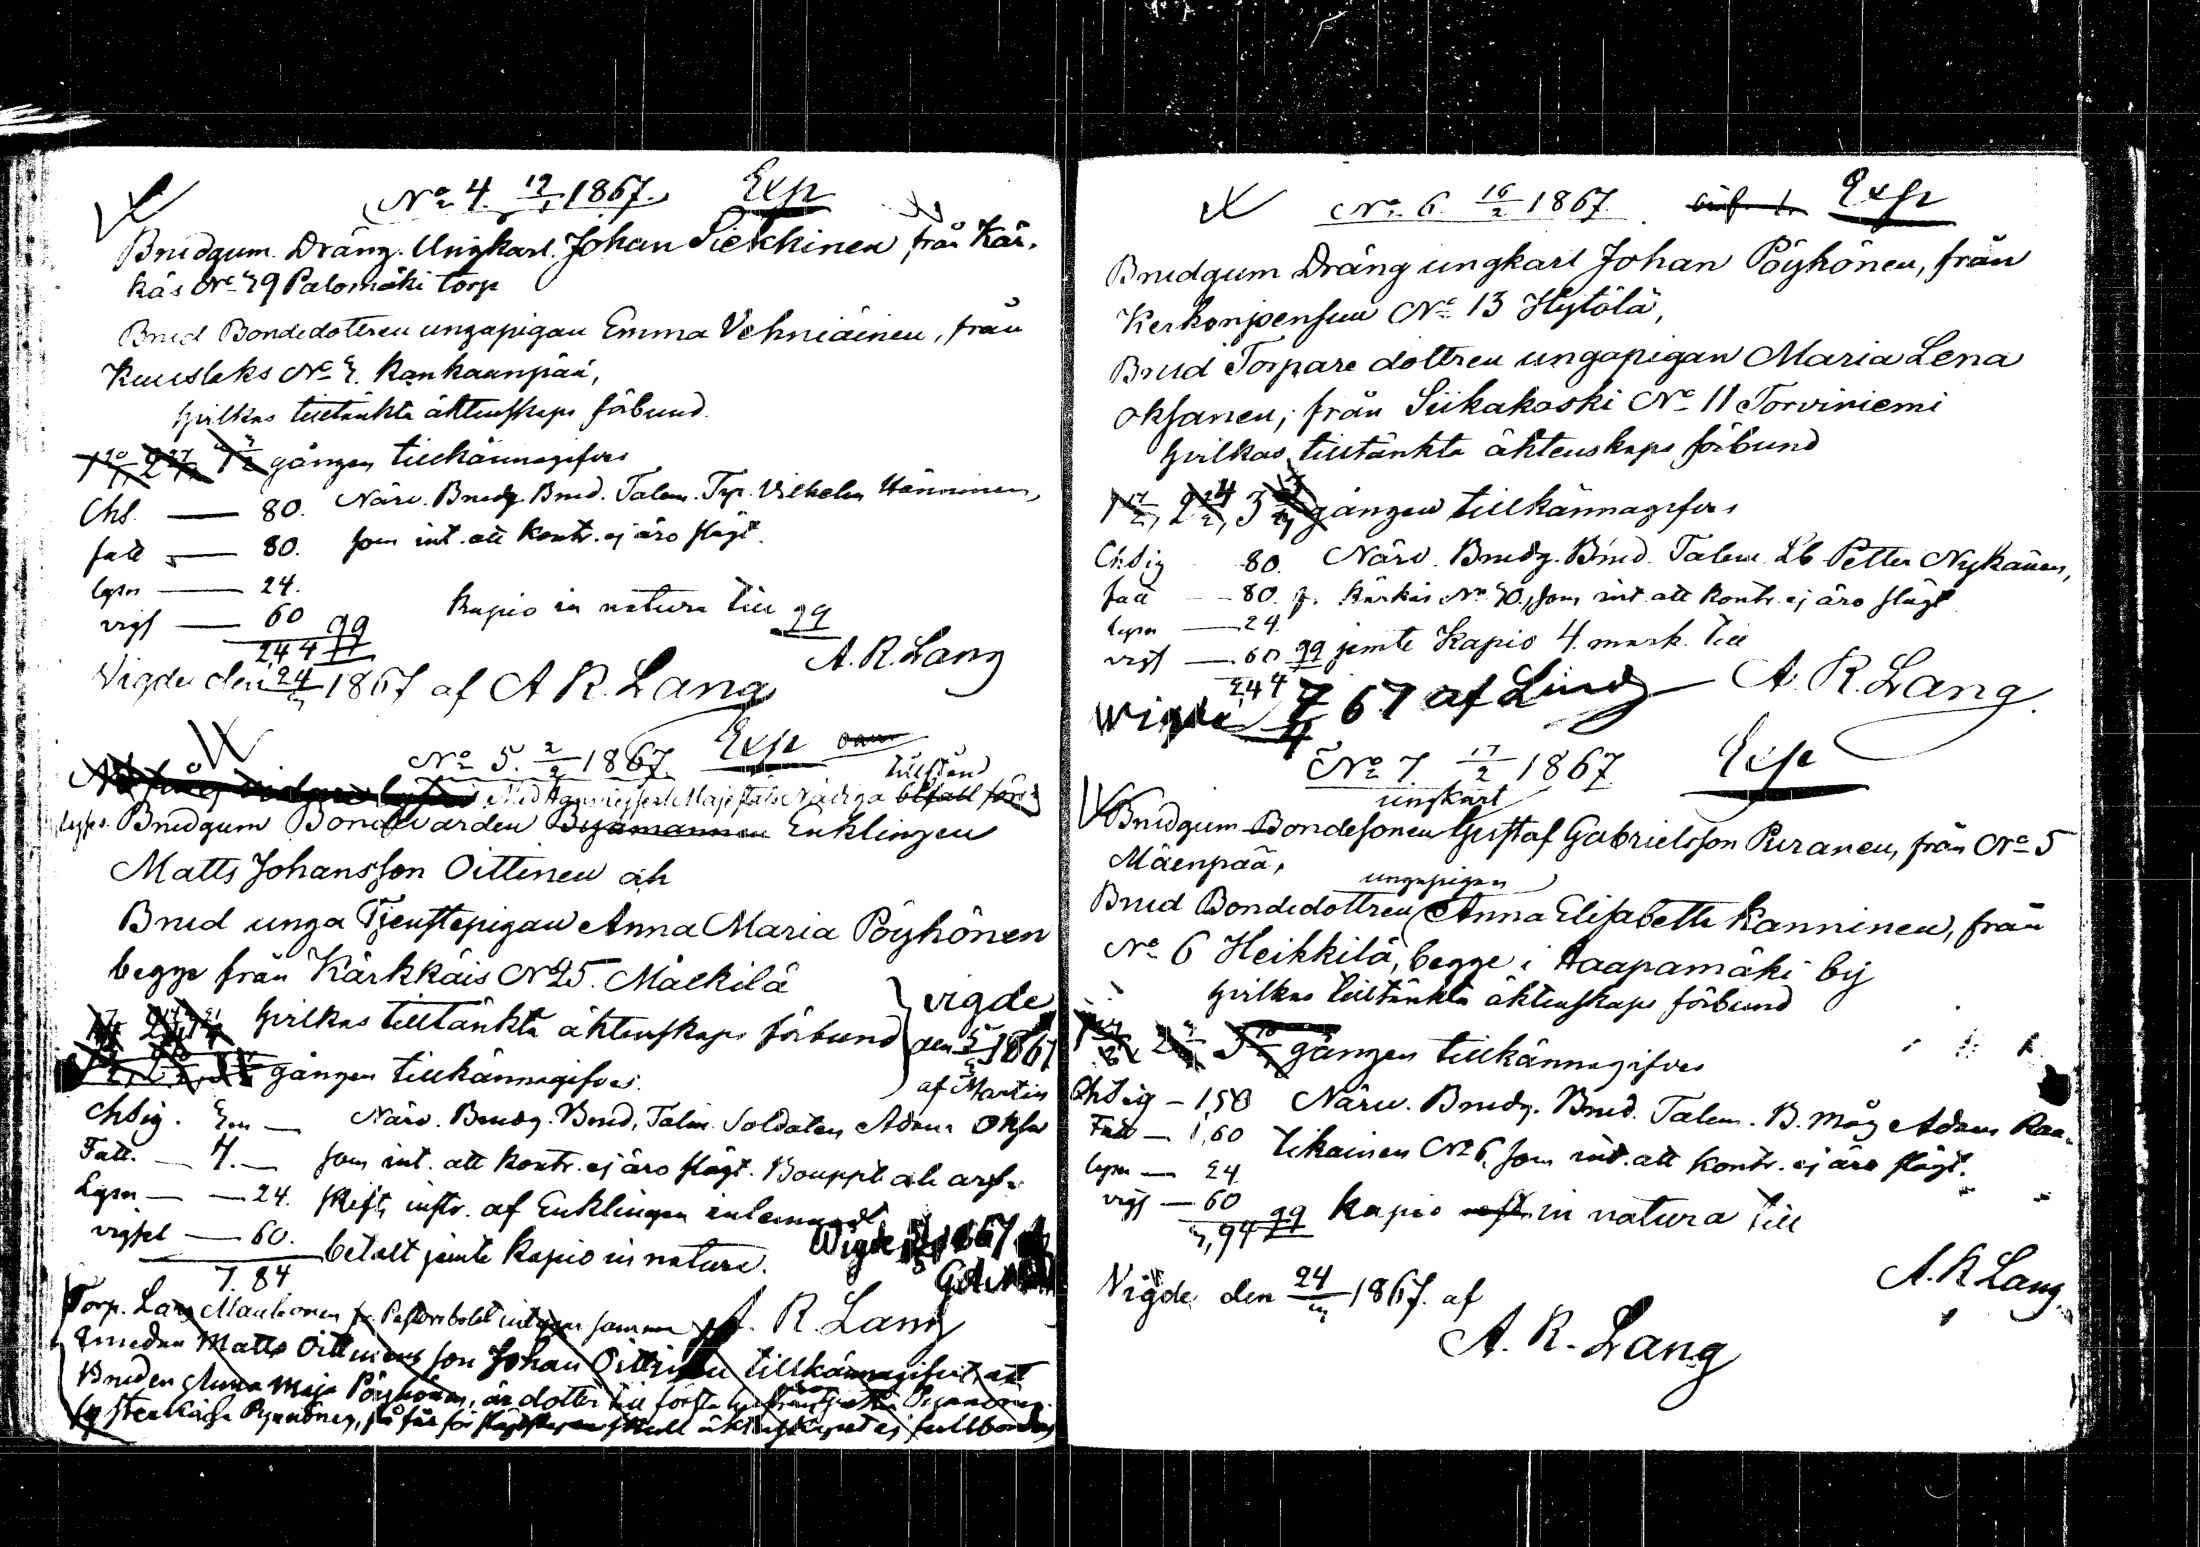 No 4. 19/1 1867. Exp
Brudgum. Dräng. Ungkarl. Johan Siekkinen, från Kär-
käs No 29 Palomäki torp
Brud Bondedottren ungapigan Emma Vehniäinen, från
Kuuslaks No 2. Kankaanpää,
hvilkas tilltänkta äktenskaps förbund.
1 20/1, 2 27/1, 3/2 gången tillkännagifves
Chs. — 80. Närv. Brudg. Brud. Talem. Trp. Vilhelm Hänninen,
fatt — 80. som int. att kontr. ej äro slägt.
lysn — 24.
vigs — 60 Kapio in natura till qq
2,44 qq A. R. Lang
Vigde den 24/3 1867 af A R. Lang
No 5. 2/2 1867. Exp
tillstånd
Med Hans Kejserl. Majestäts Nådiga befall för
lyses. Brudgum Bondevärden Byamannen Enklingen
Matts Johansson Oittinen ah
Brud unga Tjenstepigan Anna Maria Pöyhönen
begge från Kärkkäis No 25. Mälkilä
hvilkas tilltänkta äktenskaps förbund vigde
gången tillkännagifves. den 5/5 1867
af Martin
Chsig. 3 — Närv. Brudg. Brud, Talm. Soldaten Adam Oksa
Fatt. — 4. — som int. att kontr. ej äro slägt. Bouppt. ah arf-
Lysn — — 24. skift, instr. af Enklingen inlemnadt
vigsel — 60. betalt jemte kapio in natura. Wigde 1867
7.84
Torp. Lars Maukonen fr. Pastorsbolet intygar samma A. R. Lang
Emedan Matts Oittinens son Johan Oittinen tillkännagifvit, att
Bruden Anna Maja Pöyhönen, är dotter till första hustruns
syster Kajsa Pöyhönen, så får för slägtskapen skull äktenskapet ej fullbordas
No 6. 16/2 1867. Exp
Brudgum Dräng ungkarl Johan Pöyhönen, från
Kerkonjensuu No 13 Hytölä,
Brud Torpare dottren ungapigan Maria Lena
Oksanen, från Siikakoski No 11 Torviniemi
hvilkas tilltänkta äktenskaps förbund
1 17/2, 2 24/2, 3 gången tillkännagifves
Chsig 80. Närv. Brudg. Brud. Talem. Lb Petter Nykänen,
fatt — 80. fr. Kärkäs No 40, som int. att kontr. ej äro slägt
lysn — 24.
vigs — 60 qq jemte Kapio 4. mark. till
2,44 A. R. Lang.
Wigde 7/4 67 af Lind
No 7. 17/2 1867 Exp
ungkarl
Brudgum Bondesonen Gustaf Gabrielsson Puranen, från No 5
Mäenpää,
ungapigan
Brud Bondedottren Anna Elisabeth Kanninen, från
No 6 Heikkilä, begge i Haapamäki by
hvilkas tilltänkta äktenskaps förbund
gången tillkännagifves
Chsig — 1,50 Närv. Brudg. Brud. Talem. B. Måg Adam Raa-
Fatt — 1,60 tikainen No 6, som int. att kontr. ej äro slägt.
lysn — 24
vigs — 60
3,94 qq kapio in natura till
A. R Lang.
Vigde den 24/3 1867. af
A. R. Lang